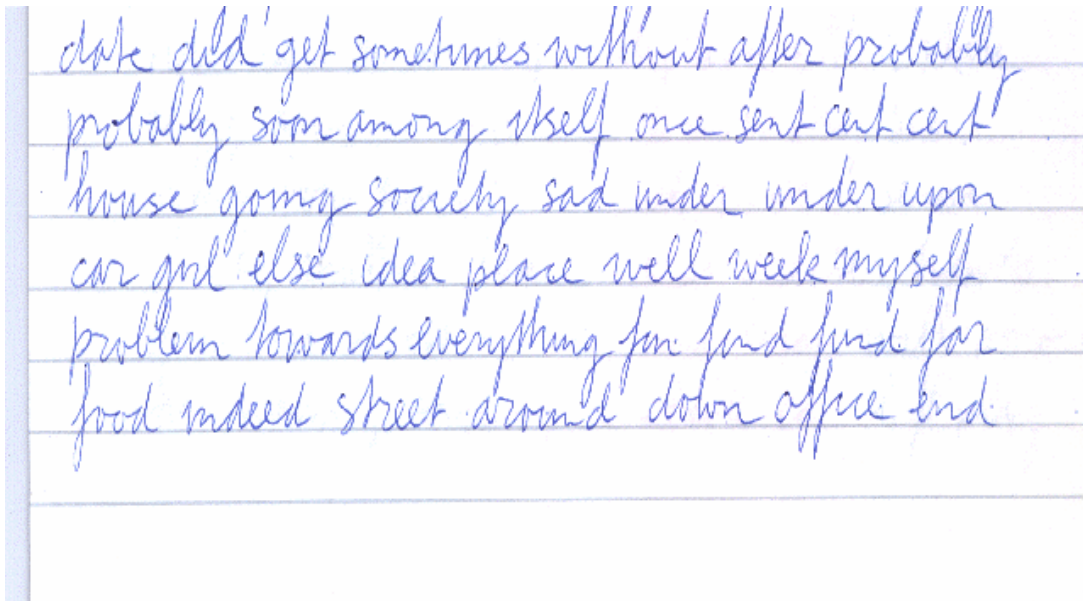 date did get sometimes without after probably
probably soon among itself once sent cent cent
house going society sad under under upon
car girl else idea place well week myself
problem towards everything fun find find far
food indeed street around down office end